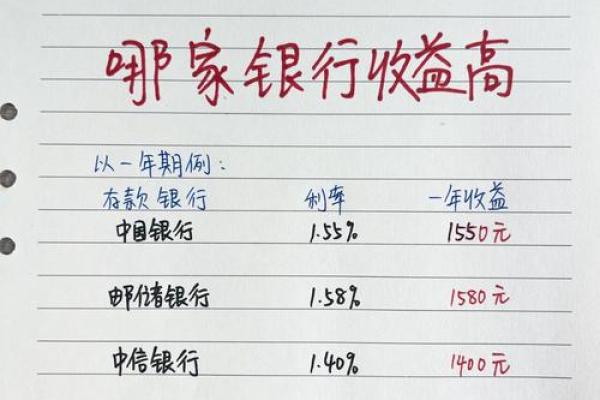 哪家银行收益高
以一年期例：
存款银行 利率 一年收益
中国银行 1.55% 1550元
邮储银行 1.58% 1580元
中信银行 1.40% 1400元